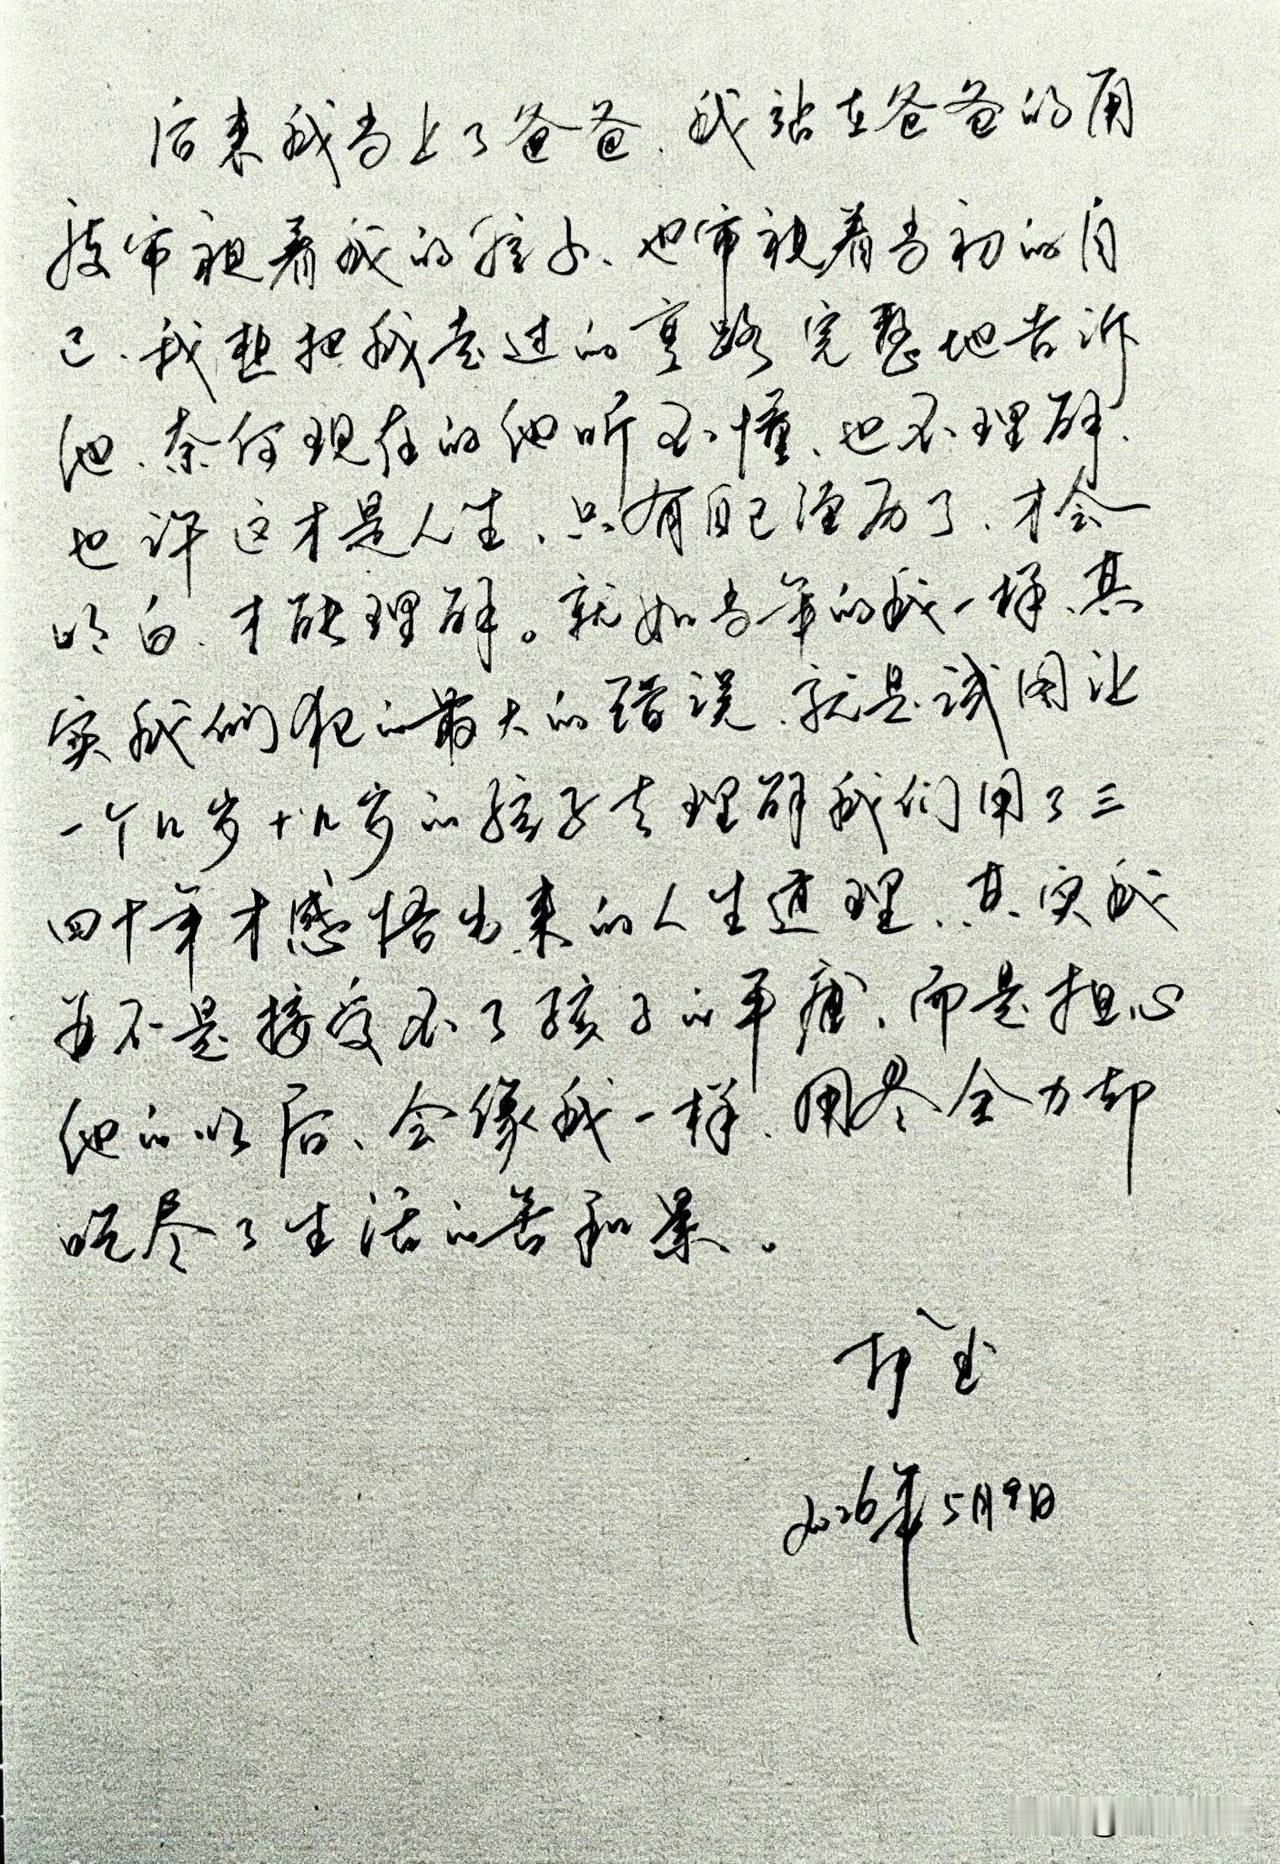 后来我当上了爸爸、我站在爸爸的角
度审视着我的孩子、也审视着当初的自
己、我想把我走过的弯路完整地告诉
他、奈何现在的他听不懂、也不理解、
也许这才是人生、只有自己经历了、才会
明白、才能理解。就如当年的我一样、其
实我们犯的最大的错误、就是试图让
一个几岁十几岁的孩子去理解我们用了三
四十年才感悟出来的人生道理、其实我
并不是接受不了孩子的平庸、而是担心
他的以后、会像我一样、用尽全力却
吃尽了生活的苦和累。
2026年5月9日